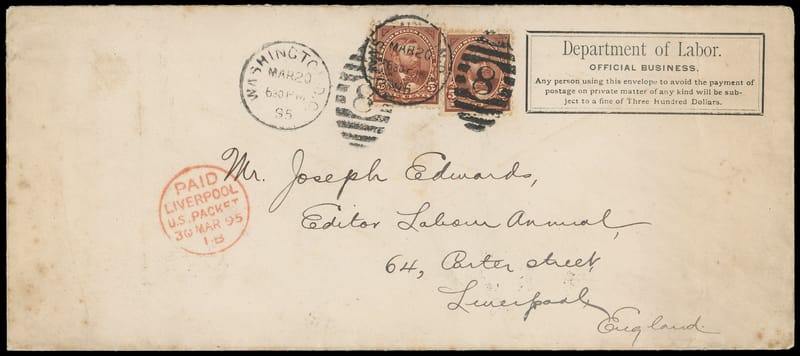 WASHINGTON, D.C.
MAR 20
630 PM
95
MAR 20
95
8
8
5
5
Department of Labor.
OFFICIAL BUSINESS.
Any person using this envelope to avoid the payment of
postage on private matter of any kind will be sub-
ject to a fine of Three Hundred Dollars.
PAID
LIVERPOOL
U.S. PACKET
30 MAR 95
1.B
Mr. Joseph Edwards,
Editor Labour Annual,
64, Carter street,
Liverpool,
England.